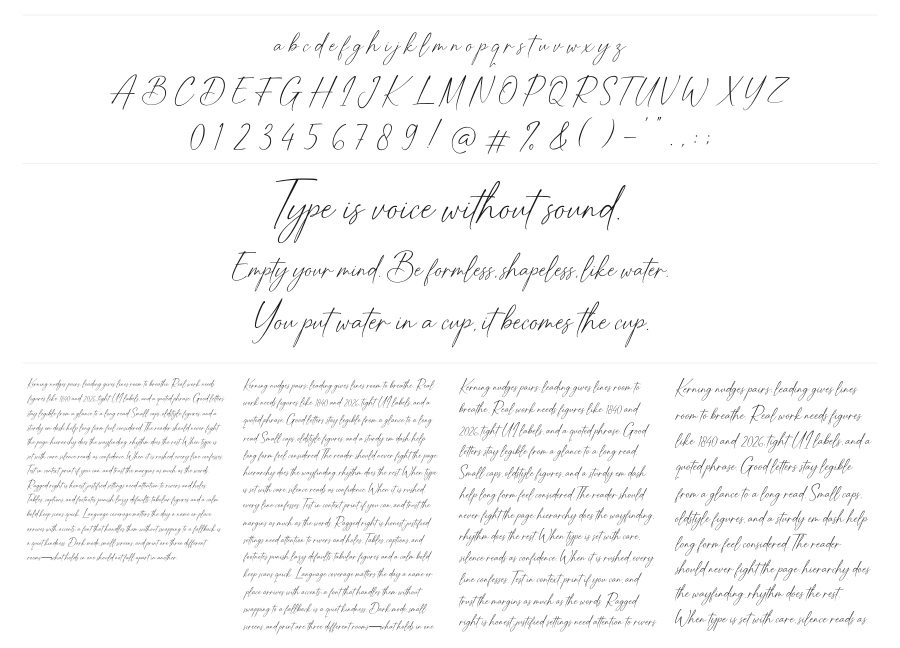 a b c d e f g h i j k l m n o p q r s t u v w x y z
A B C D E F G H I J K L M N O P Q R S T U V W X Y Z
0 1 2 3 4 5 6 7 8 9 ! @ # % & ( ) – ' " . , : ;
Type is voice without sound.
Empty your mind. Be formless, shapeless, like water.
You put water in a cup, it becomes the cup.
Kerning nudges pairs; leading gives lines room to breathe. Real work needs
figures like 1840 and 2026, tight UI labels, and a quoted phrase. Good letters
stay legible from a glance to a long read. Small caps, oldstyle figures, and a
sturdy em dash help long form feel considered. The reader should never fight
the page; hierarchy does the wayfinding, rhythm does the rest. When type is
set with care, silence reads as confidence. When it is rushed, every line confesses.
Test in context, print if you can, and trust the margins as much as the words.
Ragged right is honest; justified settings need attention to rivers and holes.
Tables, captions, and footnotes punish lazy defaults; tabular figures and a calm
bold keep rows quick. Language coverage matters the day a name or place
arrives with accents; a font that handles them without swapping to a fallback is
a quiet kindness. Dark mode, small screens, and print are three different
rooms—what holds in one should not fall apart in another.
Kerning nudges pairs; leading gives lines room to breathe. Real
work needs figures like 1840 and 2026, tight UI labels, and a
quoted phrase. Good letters stay legible from a glance to a long
read. Small caps, oldstyle figures, and a sturdy em dash help
long form feel considered. The reader should never fight the page;
hierarchy does the wayfinding, rhythm does the rest. When type
is set with care, silence reads as confidence. When it is rushed,
every line confesses. Test in context, print if you can, and trust the
margins as much as the words. Ragged right is honest; justified
settings need attention to rivers and holes. Tables, captions, and
footnotes punish lazy defaults; tabular figures and a calm bold
keep rows quick. Language coverage matters the day a name or
place arrives with accents; a font that handles them without
swapping to a fallback is a quiet kindness. Dark mode, small
screens, and print are three different rooms—what holds in one
Kerning nudges pairs; leading gives lines room to
breathe. Real work needs figures like 1840 and
2026, tight UI labels, and a quoted phrase. Good
letters stay legible from a glance to a long read.
Small caps, oldstyle figures, and a sturdy em dash
help long form feel considered. The reader should
never fight the page; hierarchy does the wayfinding,
rhythm does the rest. When type is set with care,
silence reads as confidence. When it is rushed, every
line confesses. Test in context, print if you can, and
trust the margins as much as the words. Ragged
right is honest; justified settings need attention to rivers
Kerning nudges pairs; leading gives lines
room to breathe. Real work needs figures
like 1840 and 2026, tight UI labels, and a
quoted phrase. Good letters stay legible
from a glance to a long read. Small caps,
oldstyle figures, and a sturdy em dash help
long form feel considered. The reader
should never fight the page; hierarchy does
the wayfinding, rhythm does the rest.
When type is set with care, silence reads as